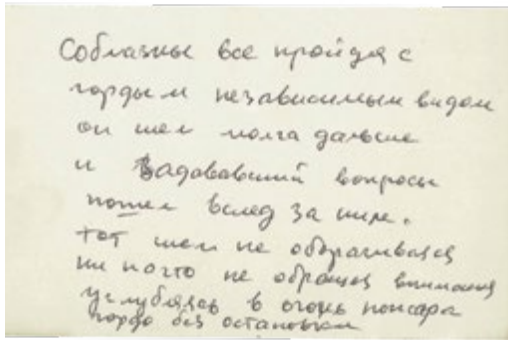 Соблазны все пройдя с
гордым независимым видом
он шел молча дальше
и задававший вопросы
пошел вслед за ним.
тот шел не оборачиваясь
ни на что не обращая внимания
углубляясь в огонь пожара
гордо без остановки